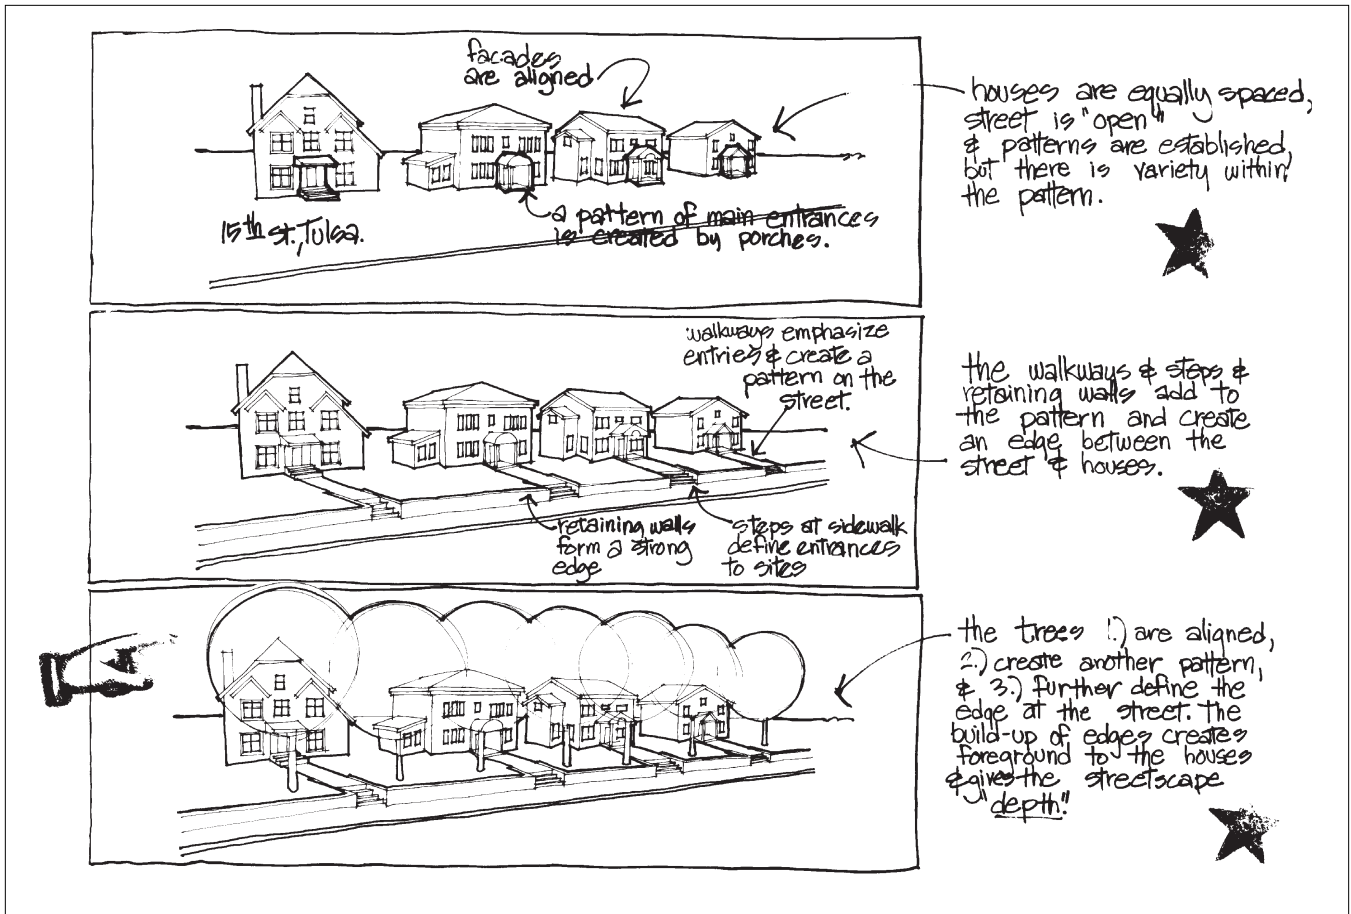 facades
are aligned
15th st., Tulsa.
a pattern of main entrances
is created by porches.
houses are equally spaced,
street is "open"
& patterns are established,
but there is variety within
the pattern.
walkways emphasize
entries & create a
pattern on the
street.
retaining walls
form a strong
edge
steps at sidewalk
define entrances
to sites
the walkways & steps &
retaining walls add to
the pattern and create
an edge between the
street & houses.
the trees 1.) are aligned,
2.) create another pattern,
& 3.) further define the
edge at the street. The
build-up of edges creates
foreground to the houses
& gives the streetscape
"depth."